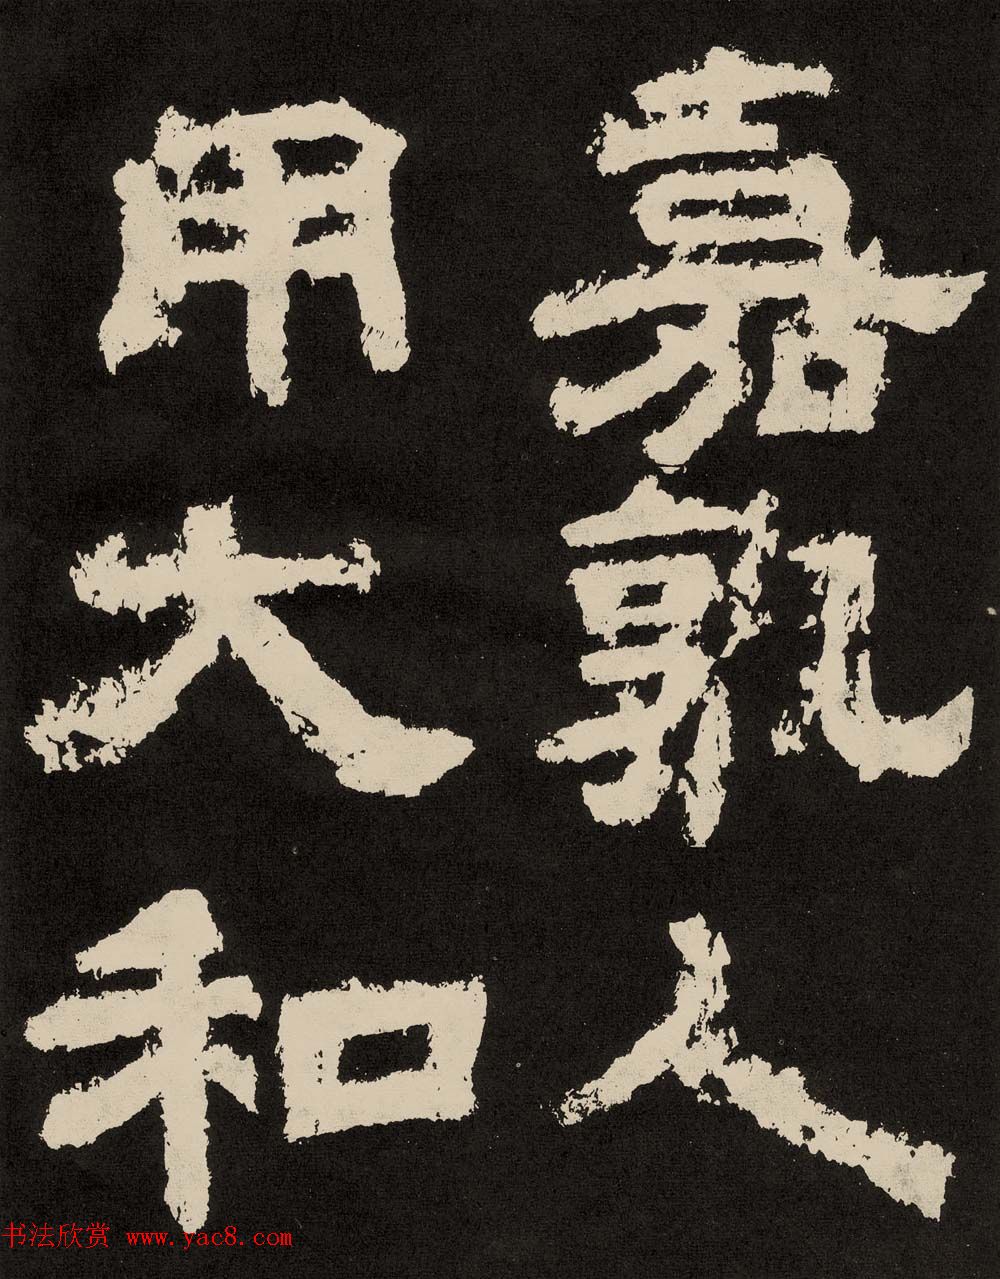 嘉孰人
用大和
书法欣赏 www.yac8.com